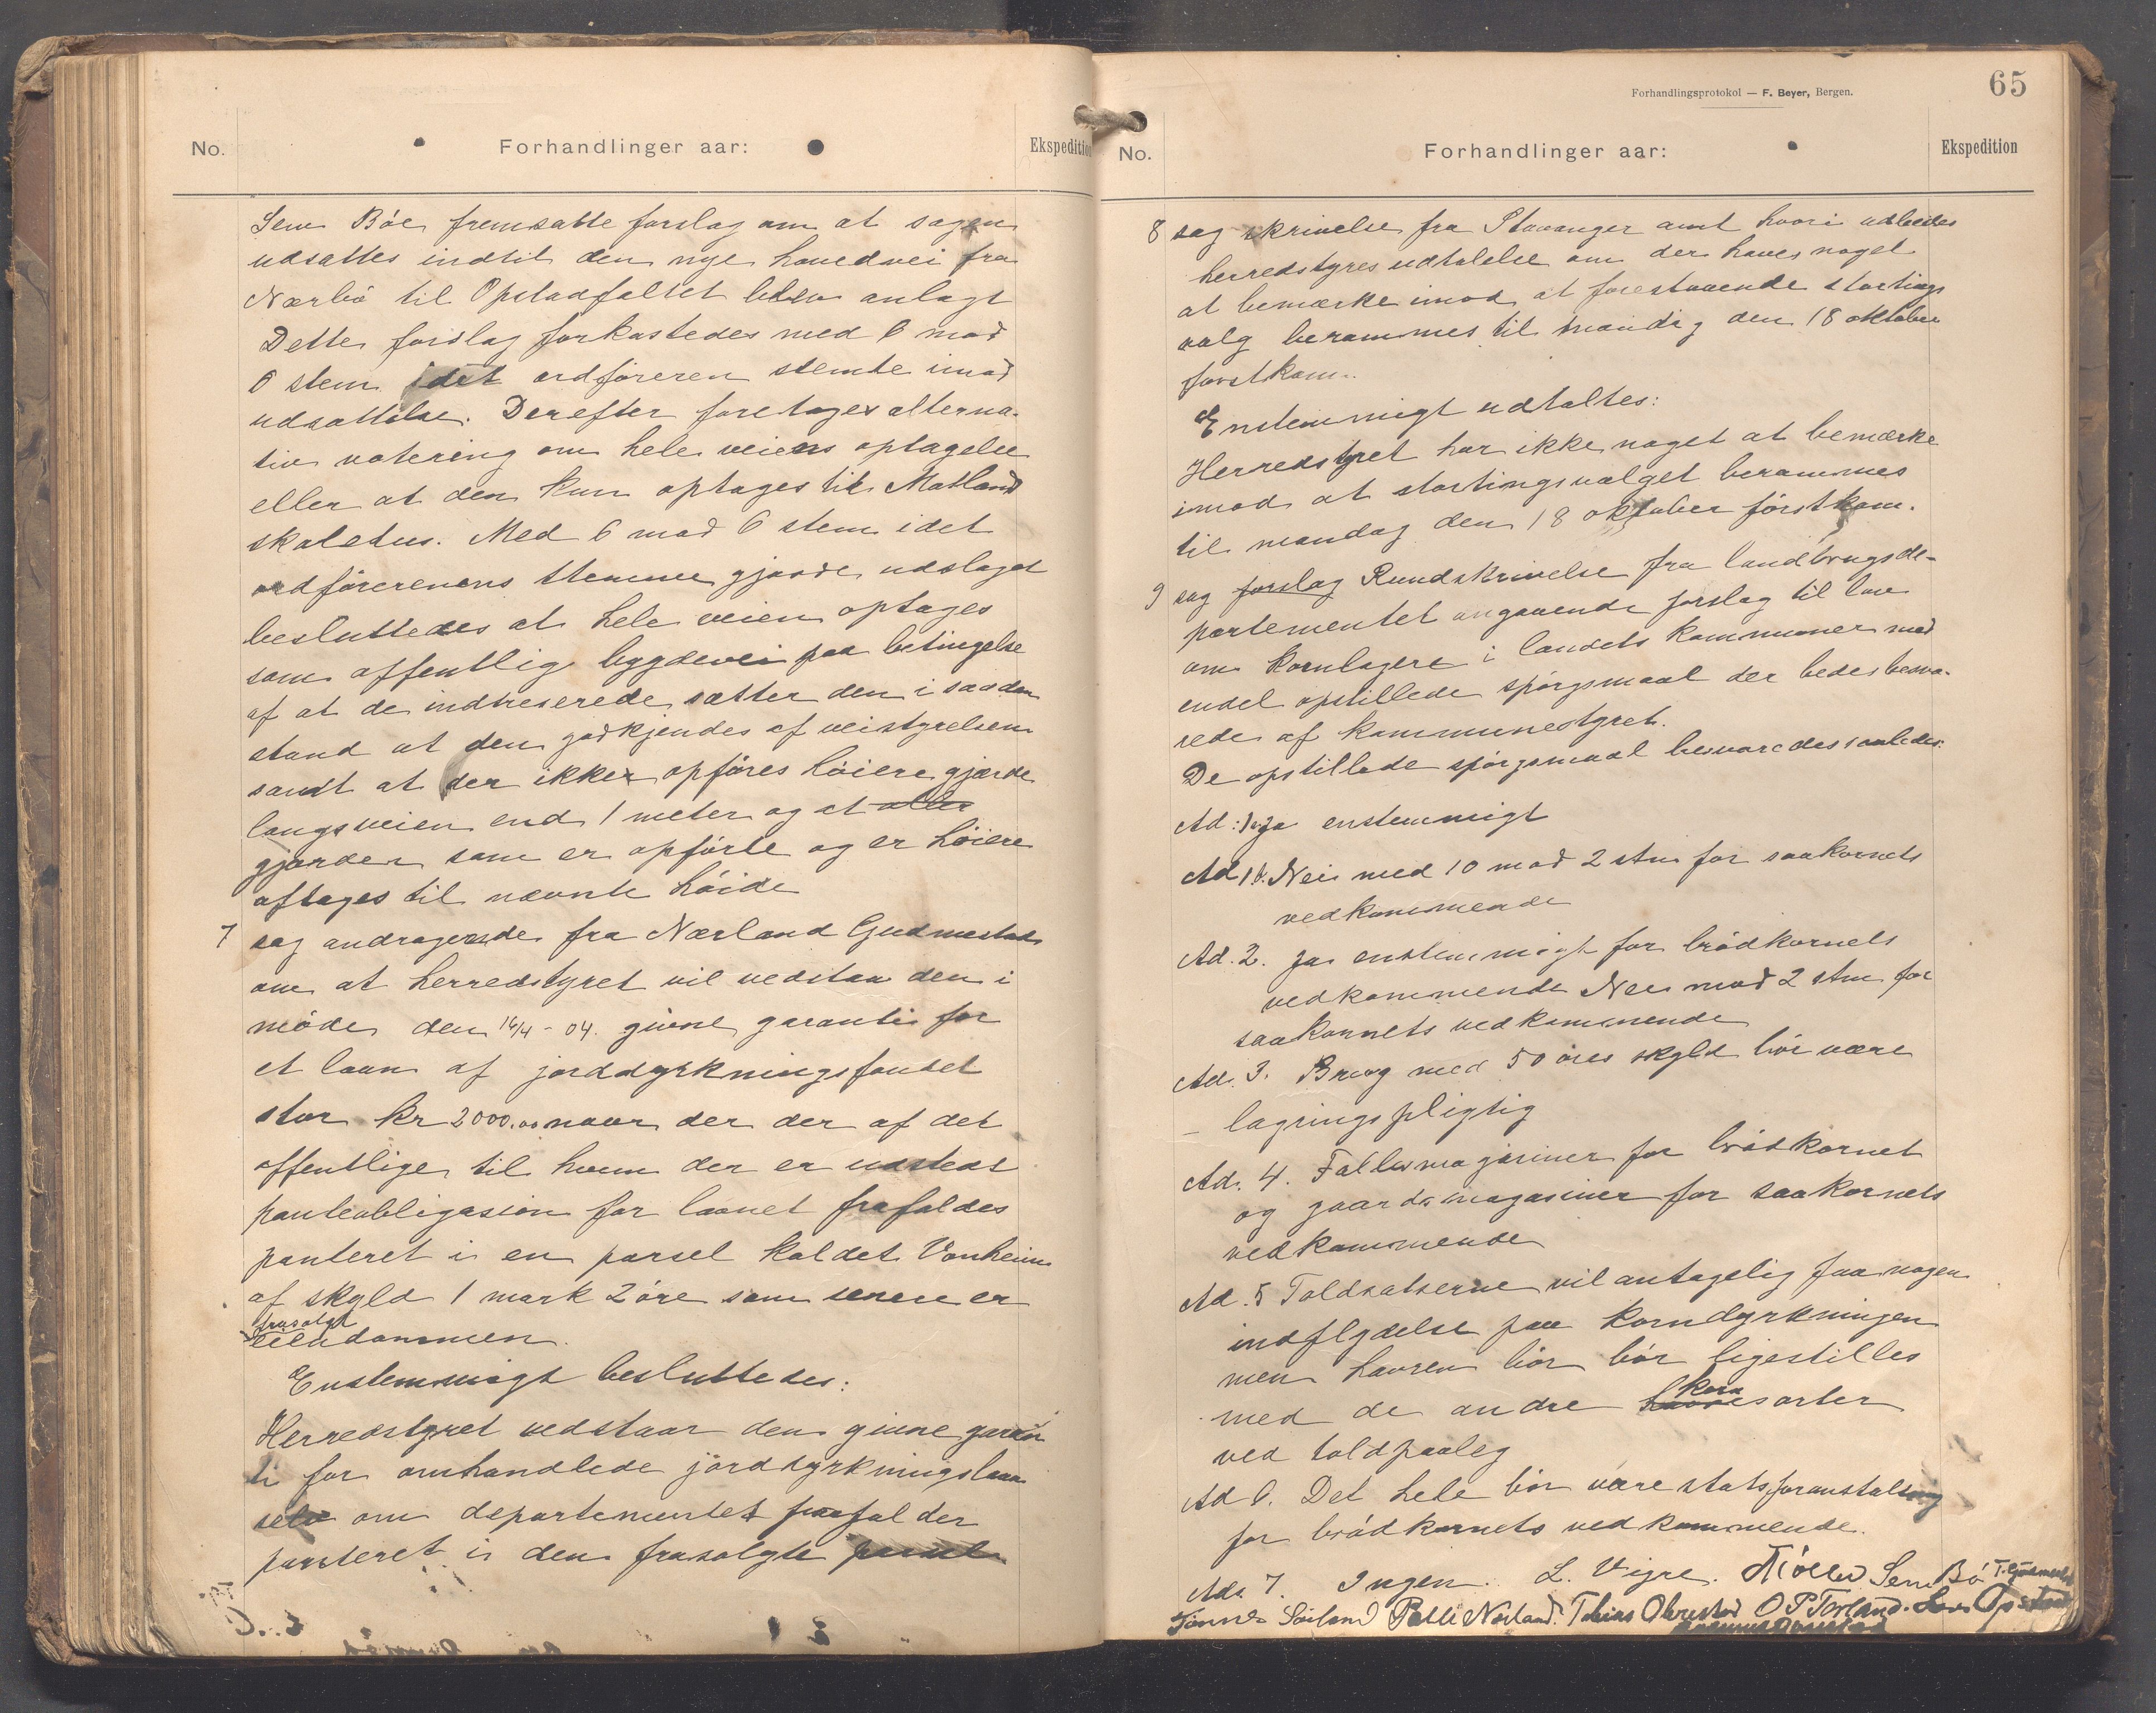 No.
Forhandlinger aar:
Ekspedition
Sem Böe fremsatte forslag om at sagen
udsattes indtil den nye hovedvei fra
Nærbö til Opstadfaltet blev anlagt
Dette forslag forkastedes med 6 mod
6 stem idet ordföreren stemte imod
udsattelse. Derefter foretoges alterna-
tiv votering om hele veiens optagelse
eller at den kun optages til Motland
skolehus. Med 6 mod 6 stem idet
ordförerenens stemme gjorde udslaget
besluttedes at hele veien optages
som offentlig bygdevei paa betingelse
af at de indtreserede sætter den i saadan
stand at den godkjendes af veistyrelsen
samt at der ikke opföres höiere gjærde
langs veien end 1 meter og at alle
gjærder som er opförte og er höiere
aftages til nævnte höide
7 sag andragende fra Nærland Gudmestad
om at herredstyret vil vedstaa den i
möde den 16/4 - 04. givne garanti for
et laan af jorddyrkningsfondet
stor kr 2000.00 naar der der af det
offentlige til hvem der er udstedt
panteobligasion for laanet frafaldes
panteret i en parsel kaldet Vonheim
af skyld 1 mark 2 öre som senere er
frasolgt
eiendommen.
Enstemmigt besluttedes:
Herredstyret vedstaar den givne garan
ti for omhandlede jorddyrkningslaan
selv om departementet frafalder
panteret i den frasolgte parsel
Forhandlingsprotokol — F. Beyer, Bergen.
65
No.
Forhandlinger aar:
Ekspedition
8 sag skrivelse fra Stavanger amt hvori udbedes
herredstyres udtalelse om der haves noget
at bemærke imod at forestaaende stortings
valg berammes til mandag den 18 oktober
forstkom.
Enstemmigt udtaltes:
Herredstyret har ikke noget at bemærke
imod at stortingsvalget berammes
til mandag den 18 oktober förstkom.
9 sag forslag Rundskrivelse fra landbrugsde-
partementet angaaende forslag til lov
om kornlagere i landets kommuner med
endel opstillede spörgsmaal der bedes besva-
rede af kommunestyret.
De opstillede spörgsmaal besvaredes saaledes:
Ad: 1a ja enstemmigt
Ad 1b. Nei med 10 mod 2 stm for saakornets
vedkommende
Ad. 2. Ja enstemmigt for brödkornets
vedkommende Nei mod 2 stm for
saakornets vedkommende
Ad. 3. Brug med 50 öres skyld bör være
lagringspligtig
Ad. 4. Fællesmagasiner for brödkornet
og gaardsmagasiner for saakornets
vedkommende
Ad. 5 Toldsatserne vil antagelig faa nogen
indflydelse paa korndyrkningen
men havren bör bör ligestilles
korn
med de andre havresorter
ved toldpaaleg
Ad 6. Det hele bör være statsforanstaltning
for brödkornets vedkommende.
Ad. 7. Ingen. L. Vigre. Sem Bö T. Gudmestad
Söiland Palle Nærland. Tobias Obrestad O P Torland. Lars Opstad